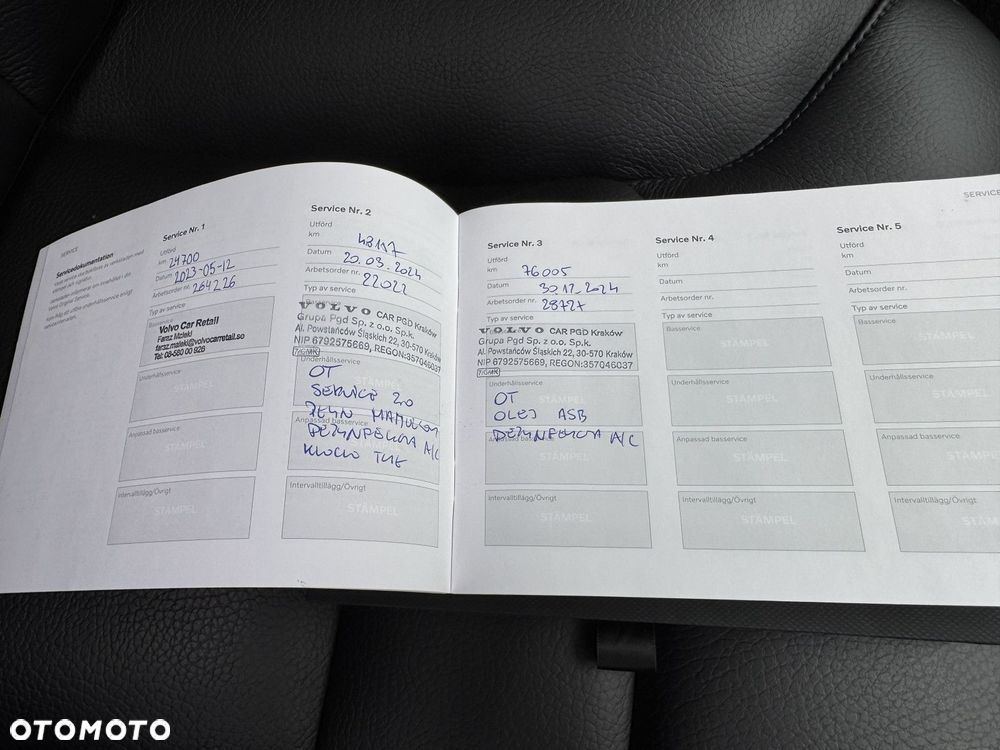 SERVICE
Servicedokumentation
Volvo Original Service.
Service Nr. 1
Utförd
km 24700
Datum 2023-05-12
Arbetsorder nr. 264226
Typ av service
Basservice
Volvo Car Retail
Faraz Maleki
faraz.maleki@volvocarretail.se
Tel: 08-580 00 926
Underhållsservice
Anpassad basservice
Intervalltillägg/Övrigt
STÄMPEL
Service Nr. 2
Utförd
km 48117
Datum 20.03.2024
Arbetsorder nr. 22022
Typ av service
Basservice
VOLVO CAR PGD Kraków
Grupa Pgd Sp. z o.o. Sp.k.
Al. Powstańców Śląskich 22, 30-570 Kraków
NIP 6792575669, REGON:357046037
Underhållsservice
STÄMPEL
OT
SERVICE 2.0
Anpassad basservice
DEZYNFEKCJA A/C
KLOCKI
Intervalltillägg/Övrigt
STÄMPEL
Service Nr. 3
Utförd
km 76005
Datum 30.12.2024
Arbetsorder nr. 28727
Typ av service
VOLVO CAR PGD Kraków
Grupa Pgd Sp. z o.o. Sp.k.
Al. Powstańców Śląskich 22, 30-570 Kraków
NIP 6792575669, REGON:357046037
Underhållsservice
STÄMPEL
OT
OLEJ ASB
DEZYNFEKCJA A/C
STÄMPEL
Intervalltillägg/Övrigt
STÄMPEL
Service Nr. 4
Utförd
km
Datum
Arbetsorder nr.
Typ av service
Basservice
STÄMPEL
Underhållsservice
STÄMPEL
Anpassad basservice
STÄMPEL
Intervalltillägg/Övrigt
STÄMPEL
SERVICE
Service Nr. 5
Utförd
km
Datum
Arbetsorder nr.
Typ av service
Basservice
Underhållsservice
Anpassad basservice
Intervalltillägg/Övrigt
OTOMOTO